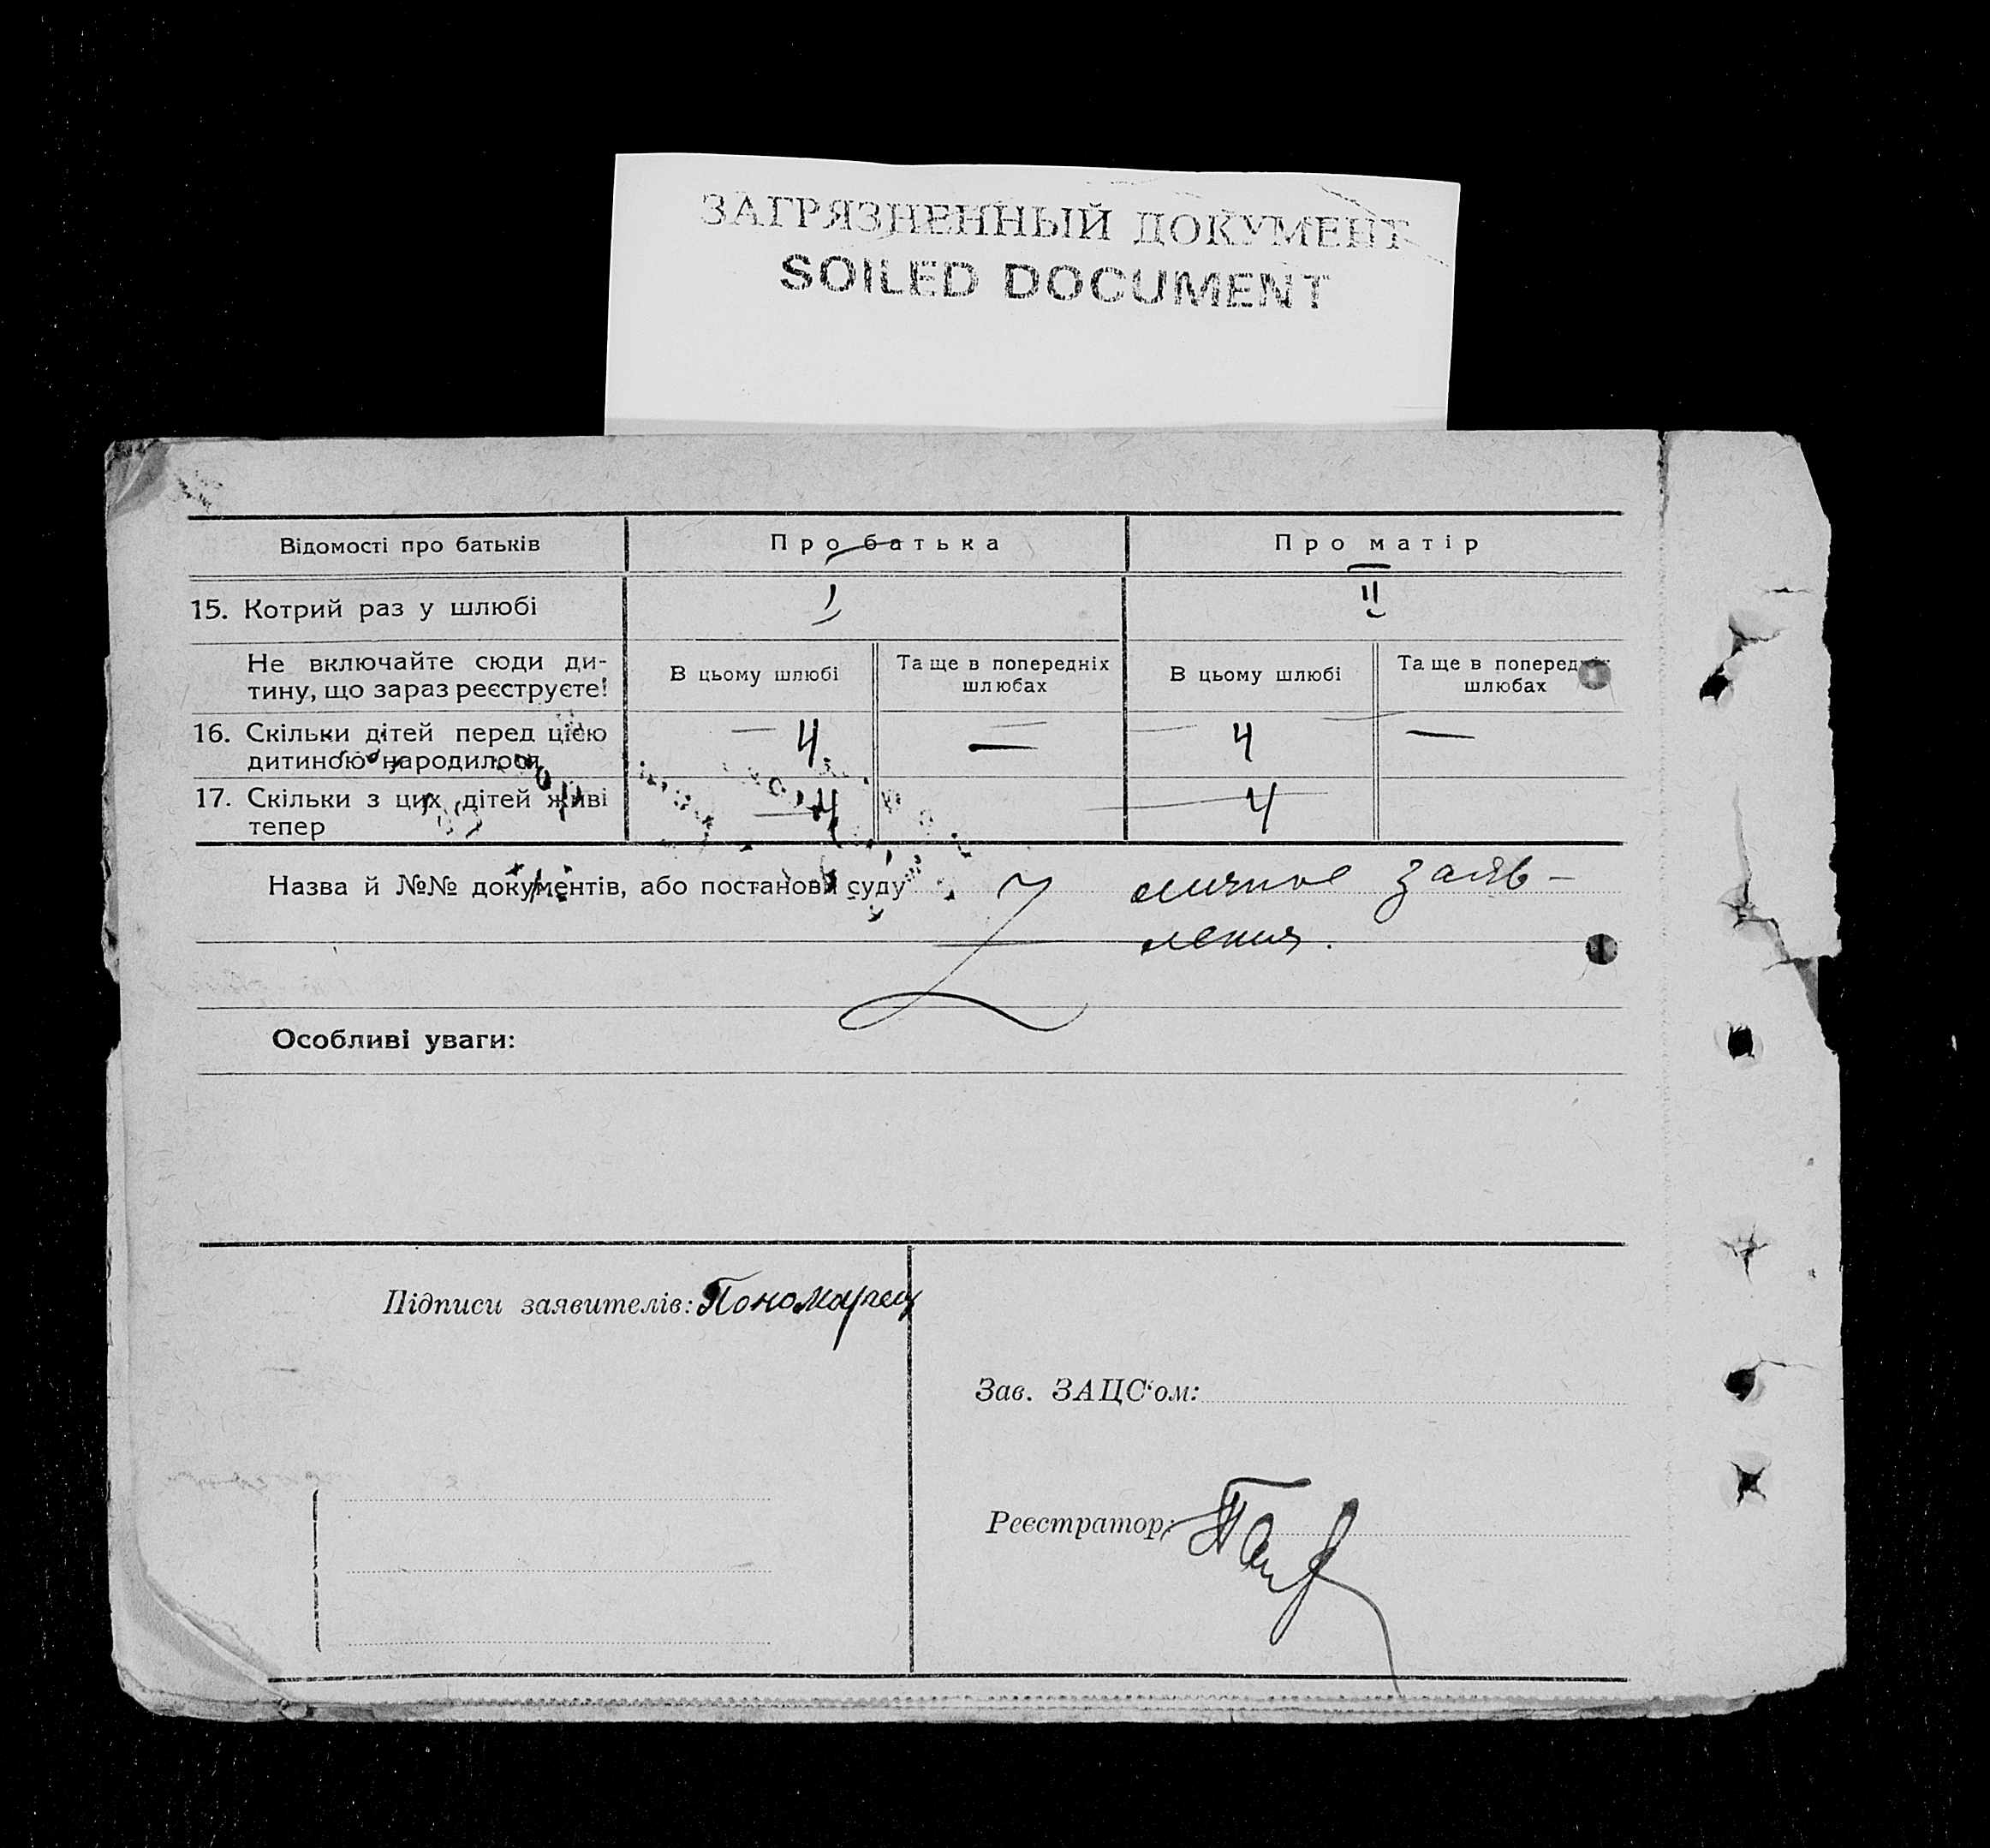 ЗАГРЯЗНЕННЫЙ ДОКУМЕНТ
SOILED DOCUMENT
Відомості про батьків
Про батька
Про матір
15. Котрий раз у шлюбі
I
II
Не включайте сюди ди-
тину, що зараз реєструєте!
В цьому шлюбі
Та ще в попередніх
шлюбах
В цьому шлюбі
Та ще в попередніх
шлюбах
16. Скільки дітей перед цією
дитиною народилося
— 4
—
4
—
17. Скільки з цих дітей живі
тепер
4
4
Назва й №№ документів, або постанови суду личное заяв-
ления.
Особливі уваги:
Підписи заявителів:
Зав. ЗАЦС'ом:
Реєстратор: